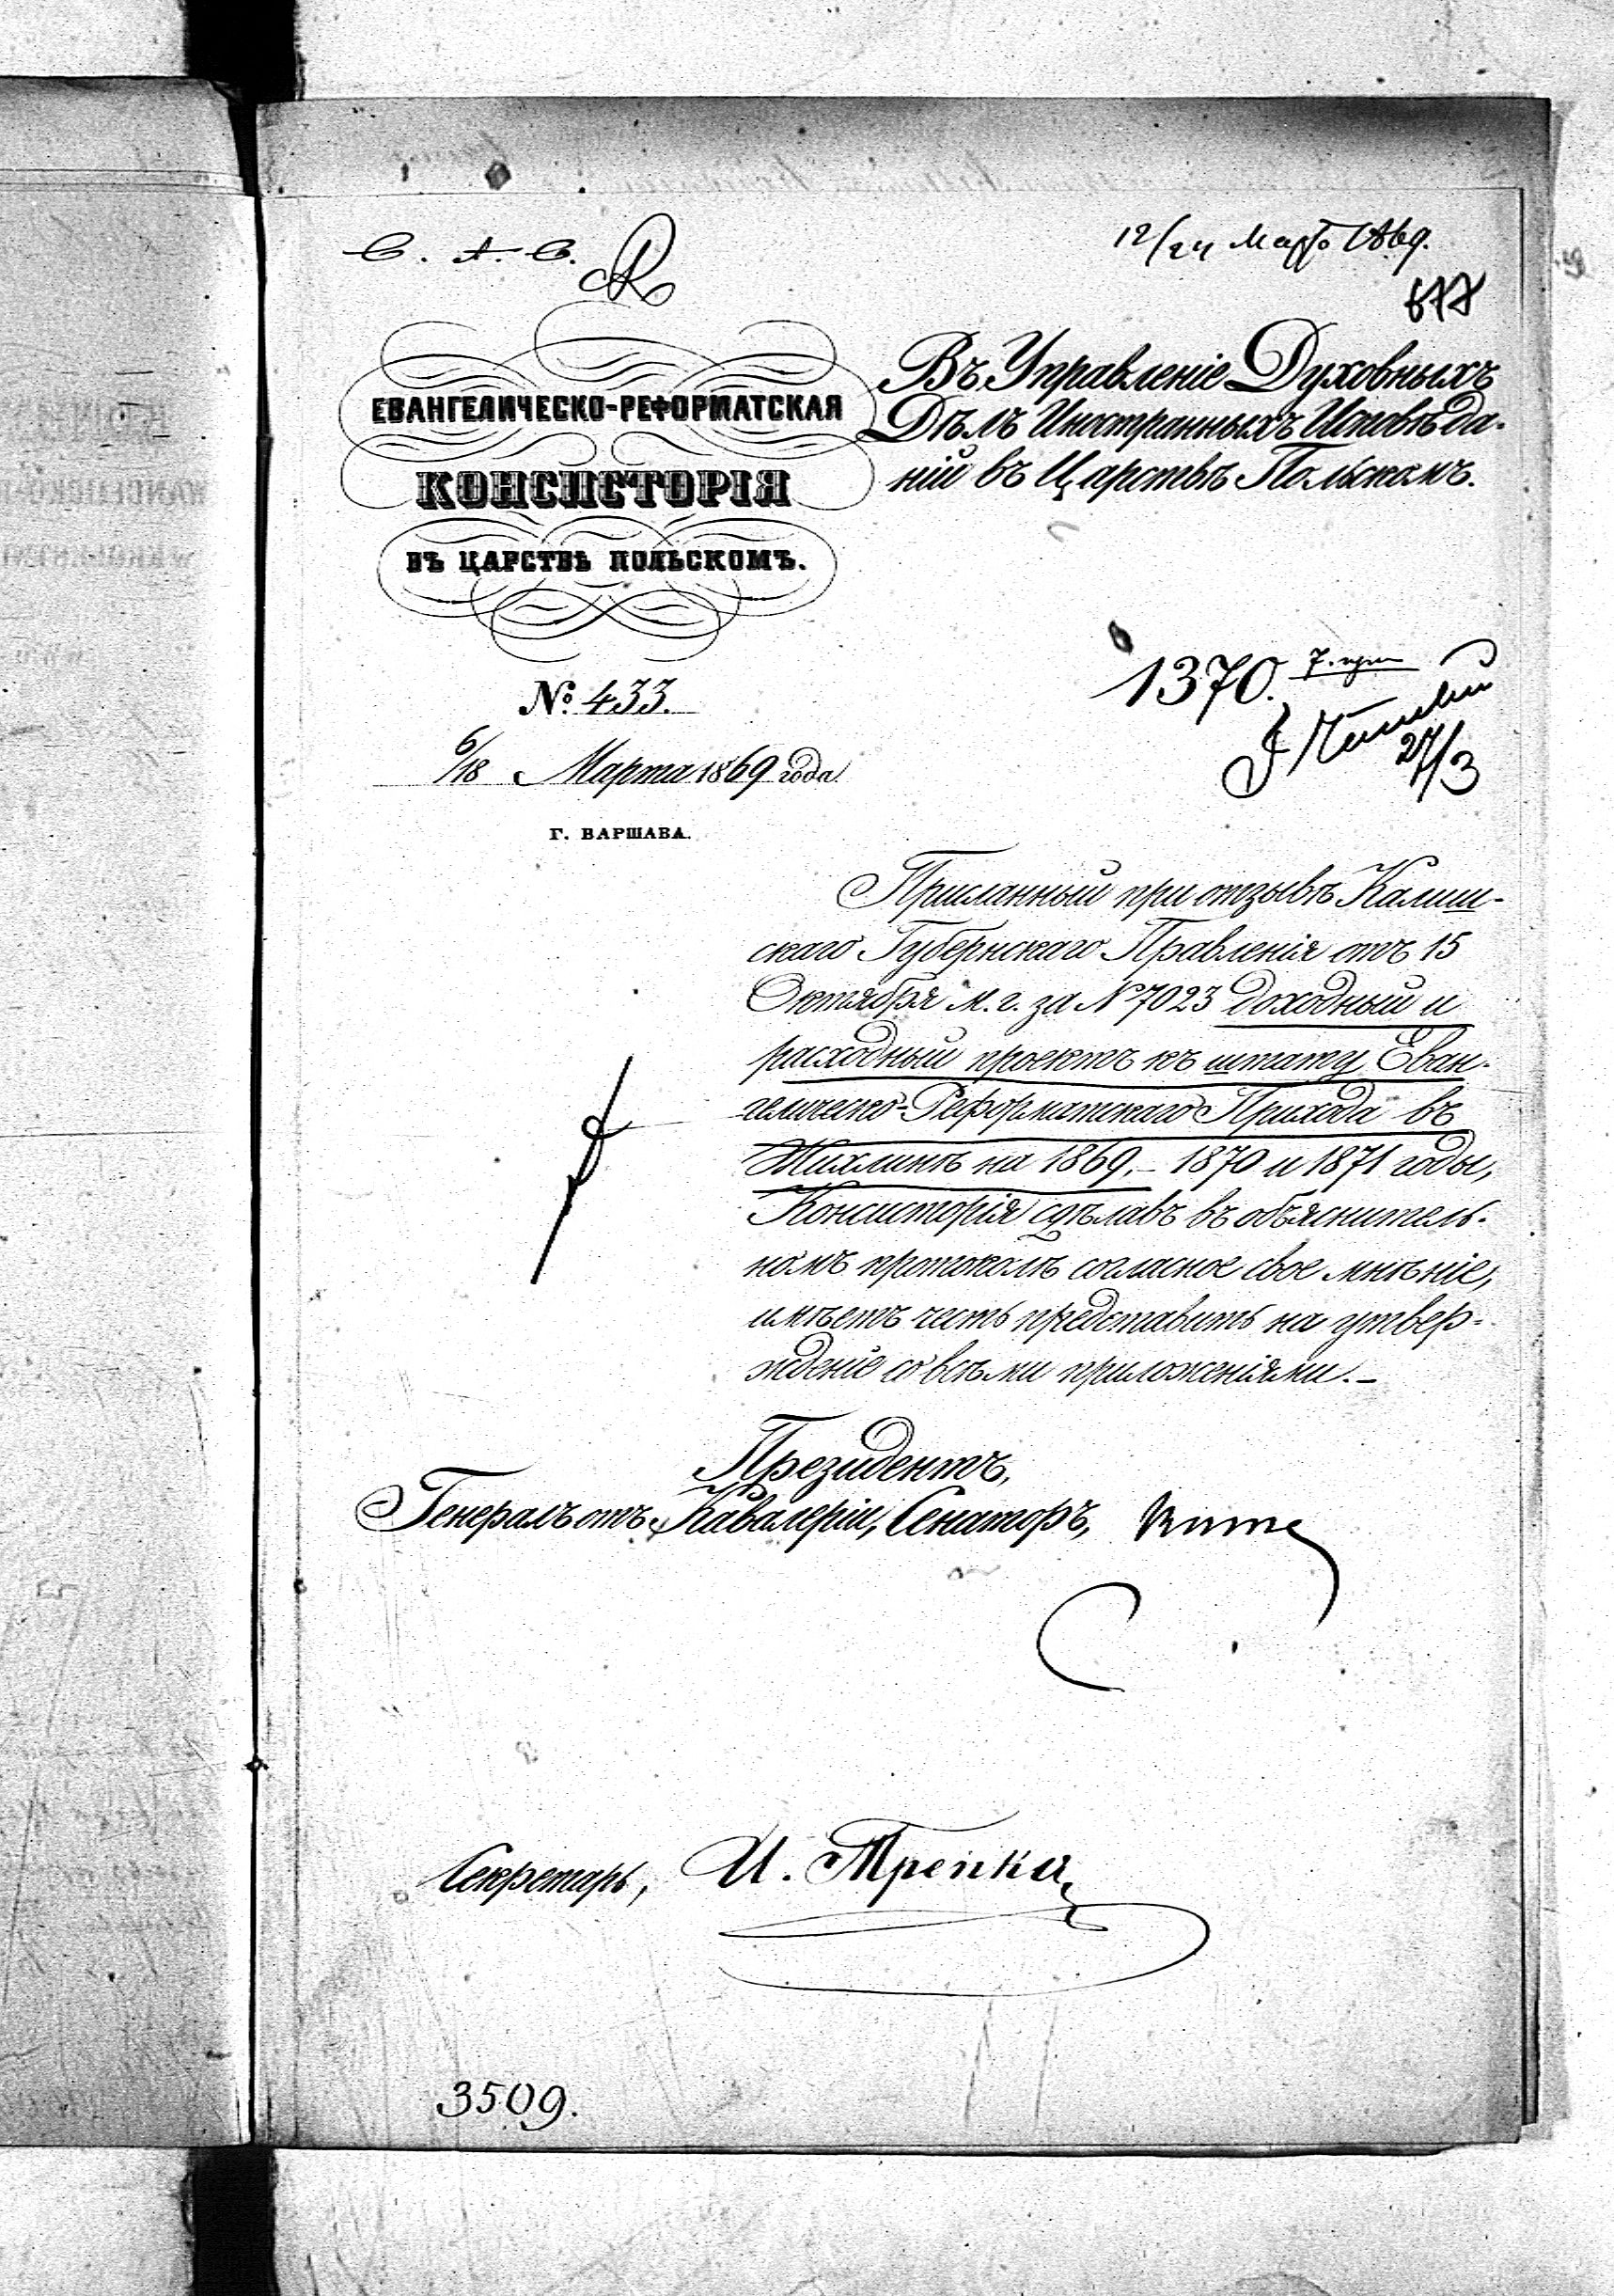 С. А. С.
12/24 Марта 1869.
677
ЕВАНГЕЛИЧЕСКО-РЕФОРМАТСКАЯ
КОНСИСТОРІЯ
ВЪ ЦАРСТВѢ ПОЛЬСКОМЪ.
№ 433.
6/18 Марта 1869 года
Г. ВАРШАВА.
Въ Управленіе Духовныхъ
Дѣлъ Иностранныхъ Исповѣда-
ній въ Царствѣ Польскомъ.
1370.
27/3
Присланный при отзывѣ Калиш-
скаго Губернскаго Правленія отъ 15
Октября м. г. за № 7023 доходный и
расходный проектъ къ штату Еван-
гелическо-Реформатскаго Прихода въ
Жихлинѣ на 1869, - 1870 и 1871 годы,
Консисторія сдѣлавъ въ объяснитель-
номъ протоколѣ согласное свое мнѣніе,
имѣетъ честь представить на утвер-
жденіе со всѣми приложеніями. -
Президентъ,
Генералъ отъ Кавалеріи, Сенаторъ,
Секретарь, И. Трепка
3509.